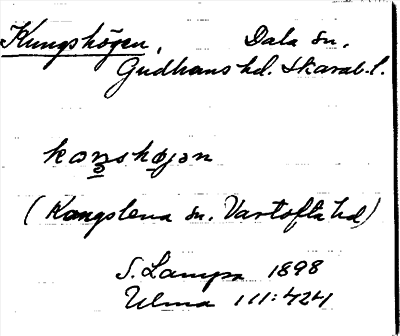 Kungshögen, Dala sn.
Gudhems hd. Skarab. l.
kɷnshøjən
(Kongslena sn. Vartofta hd)
S. Lampa 1898
Ulma 111:424